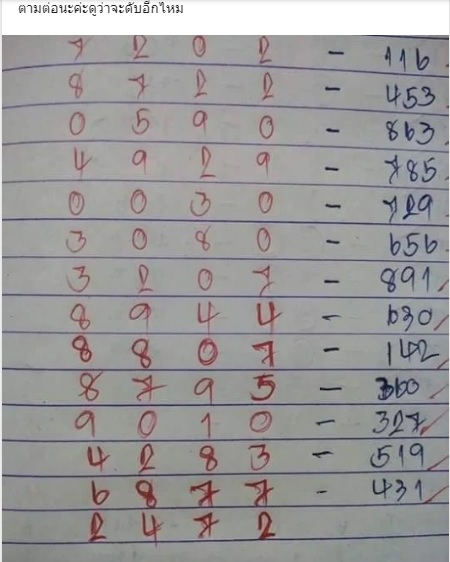 ตามต่อนะค่ะดูว่าจะดับอีกไหม
7 2 0 2 - 116
8 7 2 2 - 453
0 5 9 0 - 863
4 9 2 9 - 785
0 0 3 0 - 729
3 0 8 0 - 656
3 2 0 7 - 891
8 9 4 4 - 630
8 8 0 7 - 142
8 7 9 5 - 360
9 0 1 0 - 327
4 2 8 3 - 519
6 8 7 7 - 431
2 4 7 2